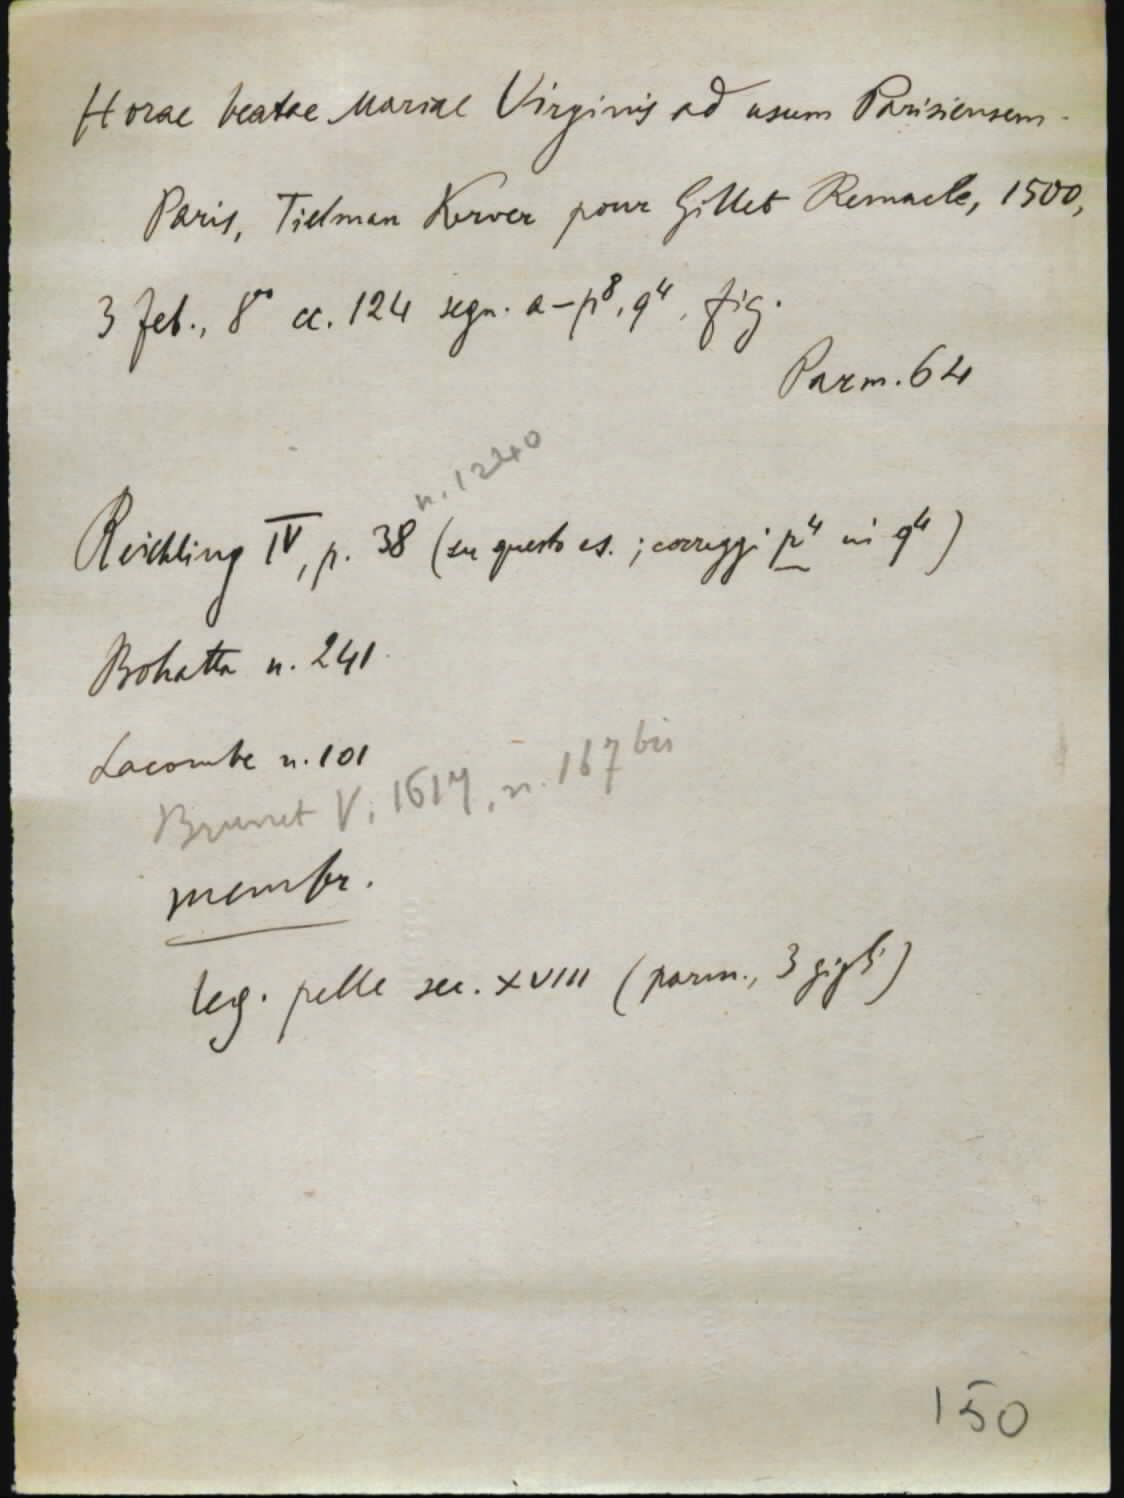 Horae beatae Mariae Virginis ad usum Parisiensem.
Paris, Tielman Kerver pour Gillet Remacle, 1500,
3 feb., 8ᵛᵒ cc. 124 segn. a–p⁸, q⁴, fig.
Parm. 64
n. 1240
Reichling IV, p. 38 (su questo es.; correggi p⁴ in q⁴)
Bohatta n. 241
Lacombe n. 101
Brunet V, 1617, n. 167 bis
membr.
leg. pelle sec. XVIII (parm., 3 gigli)
150